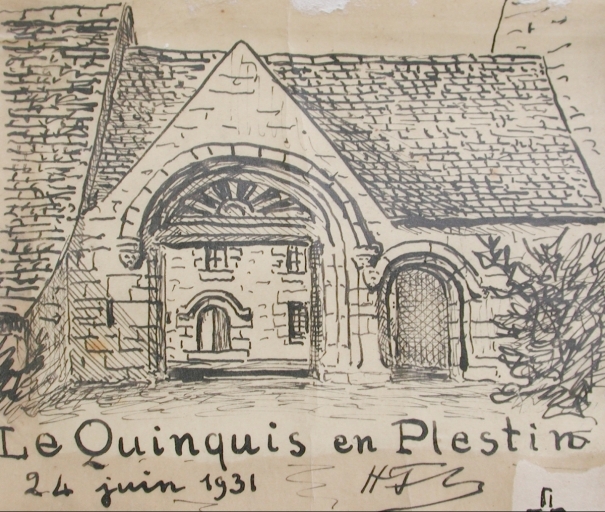 Le Quinquis en Plestin
24 juin 1931